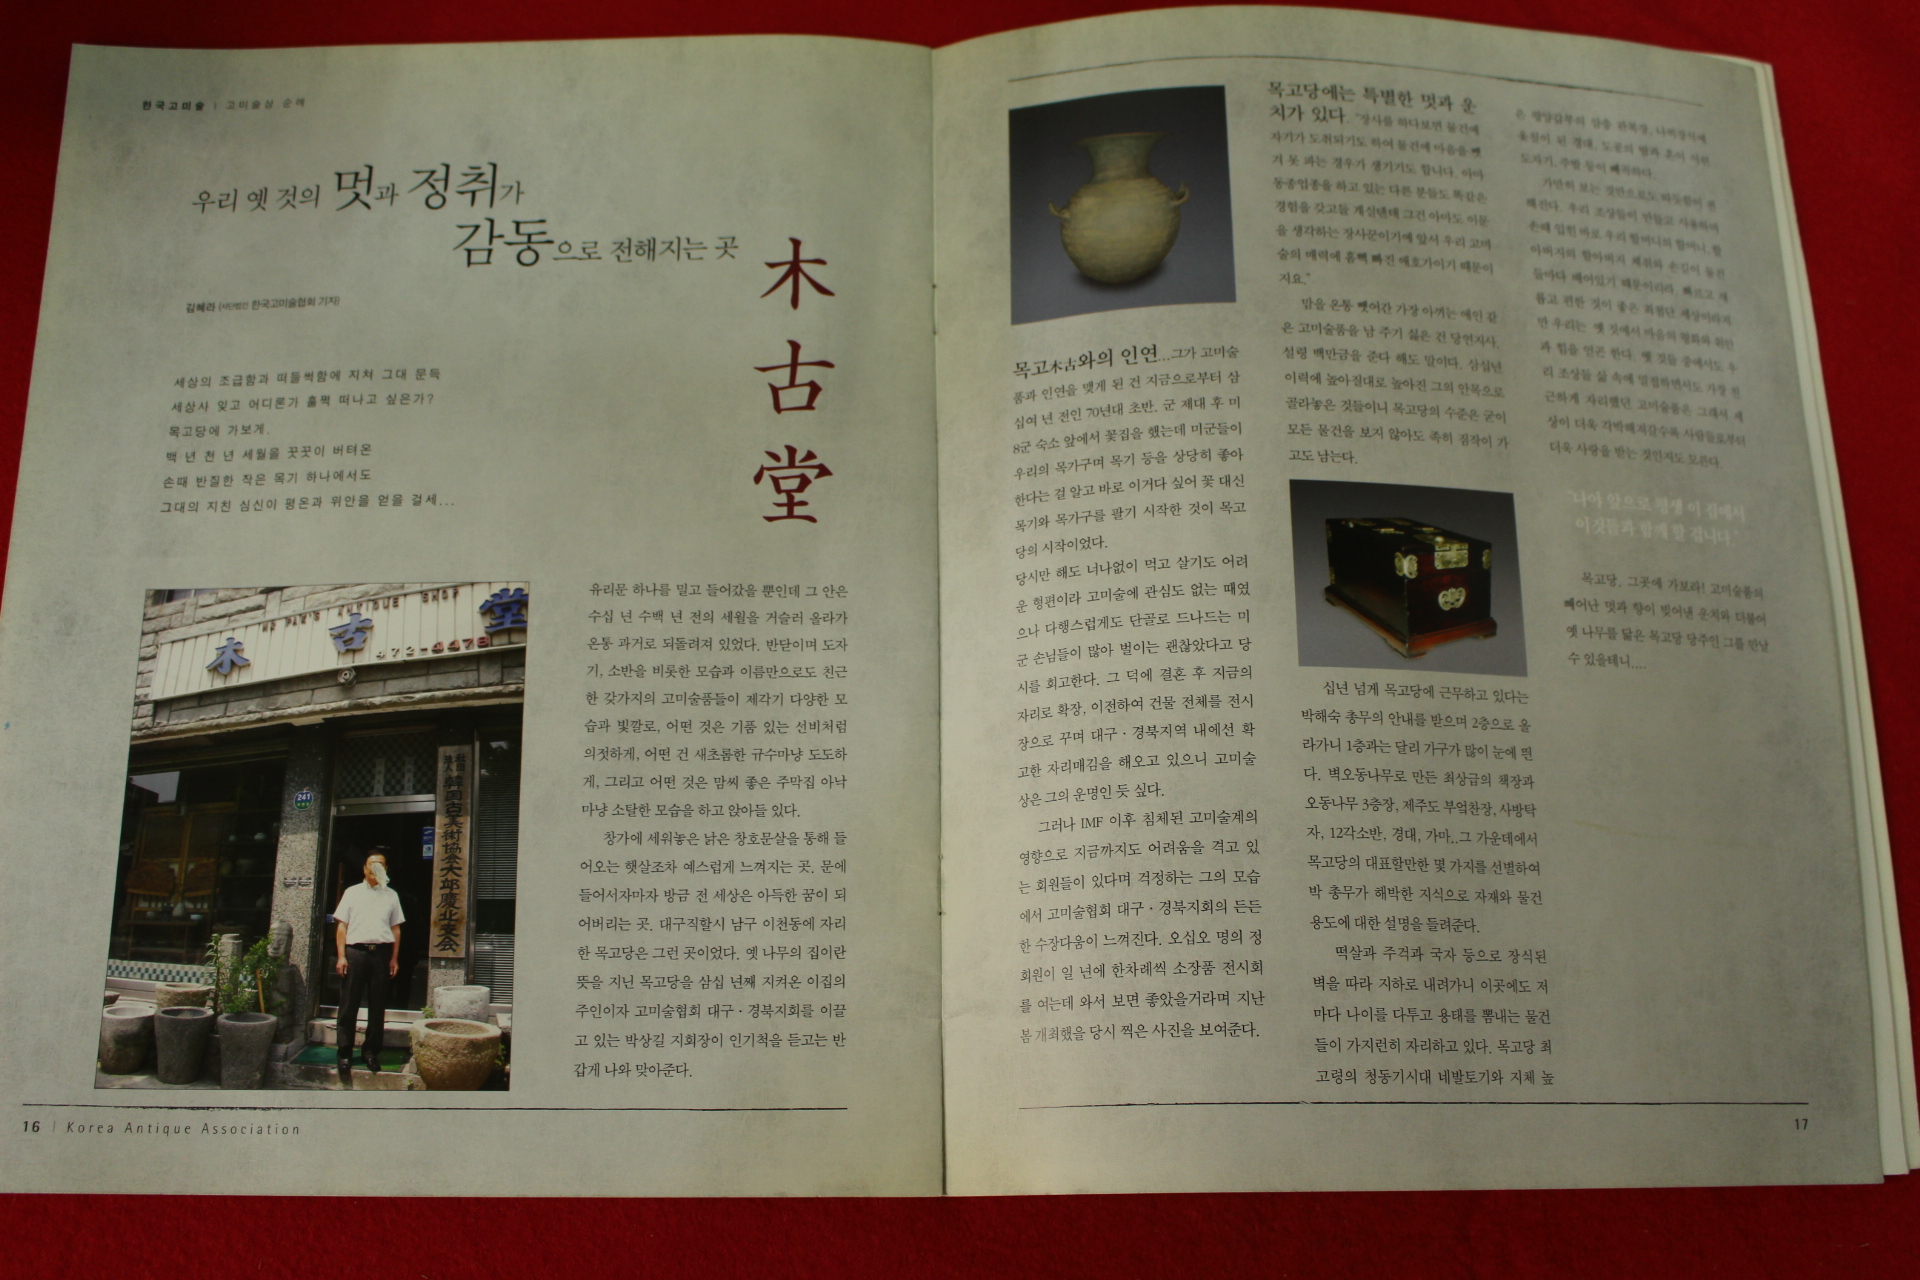 한국고미술 | 고미술상 순례
우리 옛 것의 멋과 정취가
감동으로 전해지는 곳
木古堂
김혜라 (사단법인 한국고미술협회 기자)
세상의 조급함과 떠들썩함에 지쳐 그대 문득
세상사 잊고 어디론가 훌쩍 떠나고 싶은가?
목고당에 가보게.
백 년 천 년 세월을 꿋꿋이 버텨온
손때 반질한 작은 목기 하나에서도
그대의 지친 심신이 평온과 위안을 얻을 걸세...
MO PAK'S ANTIQUE SHOP
木古堂
472-4478
241
社団法人 韓国古美術協会大邱慶北支会
유리문 하나를 밀고 들어갔을 뿐인데 그 안은
수십 년 수백 년 전의 세월을 거슬러 올라가
온통 과거로 되돌려져 있었다. 반닫이며 도자
기, 소반을 비롯한 모습과 이름만으로도 친근
한 갖가지의 고미술품들이 제각기 다양한 모
습과 빛깔로, 어떤 것은 기품 있는 선비처럼
의젓하게, 어떤 건 새초롬한 규수마냥 도도하
게, 그리고 어떤 것은 맘씨 좋은 주막집 아낙
마냥 소탈한 모습을 하고 앉아들 있다.
창가에 세워놓은 낡은 창호문살을 통해 들
어오는 햇살조차 예스럽게 느껴지는 곳. 문에
들어서자마자 방금 전 세상은 아득한 꿈이 되
어버리는 곳. 대구직할시 남구 이천동에 자리
한 목고당은 그런 곳이었다. 옛 나무의 집이란
뜻을 지닌 목고당을 삼십 년째 지켜온 이집의
주인이자 고미술협회 대구·경북지회를 이끌
고 있는 박상길 지회장이 인기척을 듣고는 반
갑게 나와 맞아준다.
16 | Korea Antique Association
목고木古와의 인연...그가 고미술
품과 인연을 맺게 된 건 지금으로부터 삼
십여 년 전인 70년대 초반. 군 제대 후 미
8군 숙소 앞에서 꽃집을 했는데 미군들이
우리의 목가구며 목기 등을 상당히 좋아
한다는 걸 알고 바로 이거다 싶어 꽃 대신
목기와 목가구를 팔기 시작한 것이 목고
당의 시작이었다.
당시만 해도 너나없이 먹고 살기도 어려
운 형편이라 고미술에 관심도 없는 때였
으나 다행스럽게도 단골로 드나드는 미
군 손님들이 많아 벌이는 괜찮았다고 당
시를 회고한다. 그 덕에 결혼 후 지금의
자리로 확장, 이전하여 건물 전체를 전시
장으로 꾸며 대구·경북지역 내에선 확
고한 자리매김을 해오고 있으니 고미술
상은 그의 운명인 듯 싶다.
그러나 IMF 이후 침체된 고미술계의
영향으로 지금까지도 어려움을 겪고 있
는 회원들이 있다며 걱정하는 그의 모습
에서 고미술협회 대구·경북지회의 든든
한 수장다움이 느껴진다. 오십오 명의 정
회원이 일 년에 한차례씩 소장품 전시회
를 여는데 와서 보면 좋았을거라며 지난
봄 개최했을 당시 찍은 사진을 보여준다.
목고당에는 특별한 멋과 운
치가 있다. "장사를 하다보면 물건에
자기가 도취되기도 하여 물건에 마음을 뺏
겨 못 파는 경우가 생기기도 합니다. 아마
동종업종을 하고 있는 다른 분들도 똑같은
경험을 갖고들 계실텐데 그건 아마도 이문
을 생각하는 장사꾼이기에 앞서 우리 고미
술의 매력에 흠뻑 빠진 애호가이기 때문이
지요."
맘을 온통 뺏어간 가장 아끼는 애인 같
은 고미술품을 남 주기 싫은 건 당연지사.
설령 백만금을 준다 해도 말이다. 삼십년
이력에 높아질대로 높아진 그의 안목으로
골라놓은 것들이니 목고당의 수준은 굳이
모든 물건을 보지 않아도 족히 짐작이 가
고도 남는다.
십년 넘게 목고당에 근무하고 있다는
박해숙 총무의 안내를 받으며 2층으로 올
라가니 1층과는 달리 가구가 많이 눈에 띈
다. 벽오동나무로 만든 최상급의 책장과
오동나무 3층장, 제주도 부엌찬장, 사방탁
자, 12각소반, 경대, 가마...그 가운데에서
목고당의 대표할만한 몇 가지를 선별하여
박 총무가 해박한 지식으로 자재와 물건
용도에 대한 설명을 들려준다.
떡살과 주걱과 국자 등으로 장식된
벽을 따라 지하로 내려가니 이곳에도 저
마다 나이를 다투고 용태를 뽐내는 물건
들이 가지런히 자리하고 있다. 목고당 최
고령의 청동기시대 네발토기와 지체 높
은 평양갑부의 삼층 관복장, 나비장식에
옻칠이 된 경대, 도공의 땀과 혼이 서린
도자기, 주발 등이 빼곡하다.
가만히 보는 것만으로도 따듯함이 전
해진다. 우리 조상들이 만들고 사용하며
손때 입힌 바로 우리 할머니의 할머니, 할
아버지의 할아버지 체취와 손길이 물건
들마다 배어있기 때문이리라. 빠르고 새
롭고 편한 것이 좋은 최첨단 세상이라지
만 우리는 옛 것에서 마음의 평화와 위안
과 힘을 얻곤 한다. 옛 것들 중에서도 우
리 조상들 삶 속에 밀접하면서도 가장 친
근하게 자리했던 고미술품은 그래서 세
상이 더욱 각박해져갈수록 사람들로부터
더욱 사랑을 받는 것인지도 모른다.
"나야 앞으로 평생 이 집에서
이것들과 함께 할 겁니다."
목고당. 그곳에 가보라! 고미술품의
빼어난 멋과 향이 빚어낸 운치와 더불어
옛 나무를 닮은 목고당 당주인 그를 만날
수 있을테니....
17